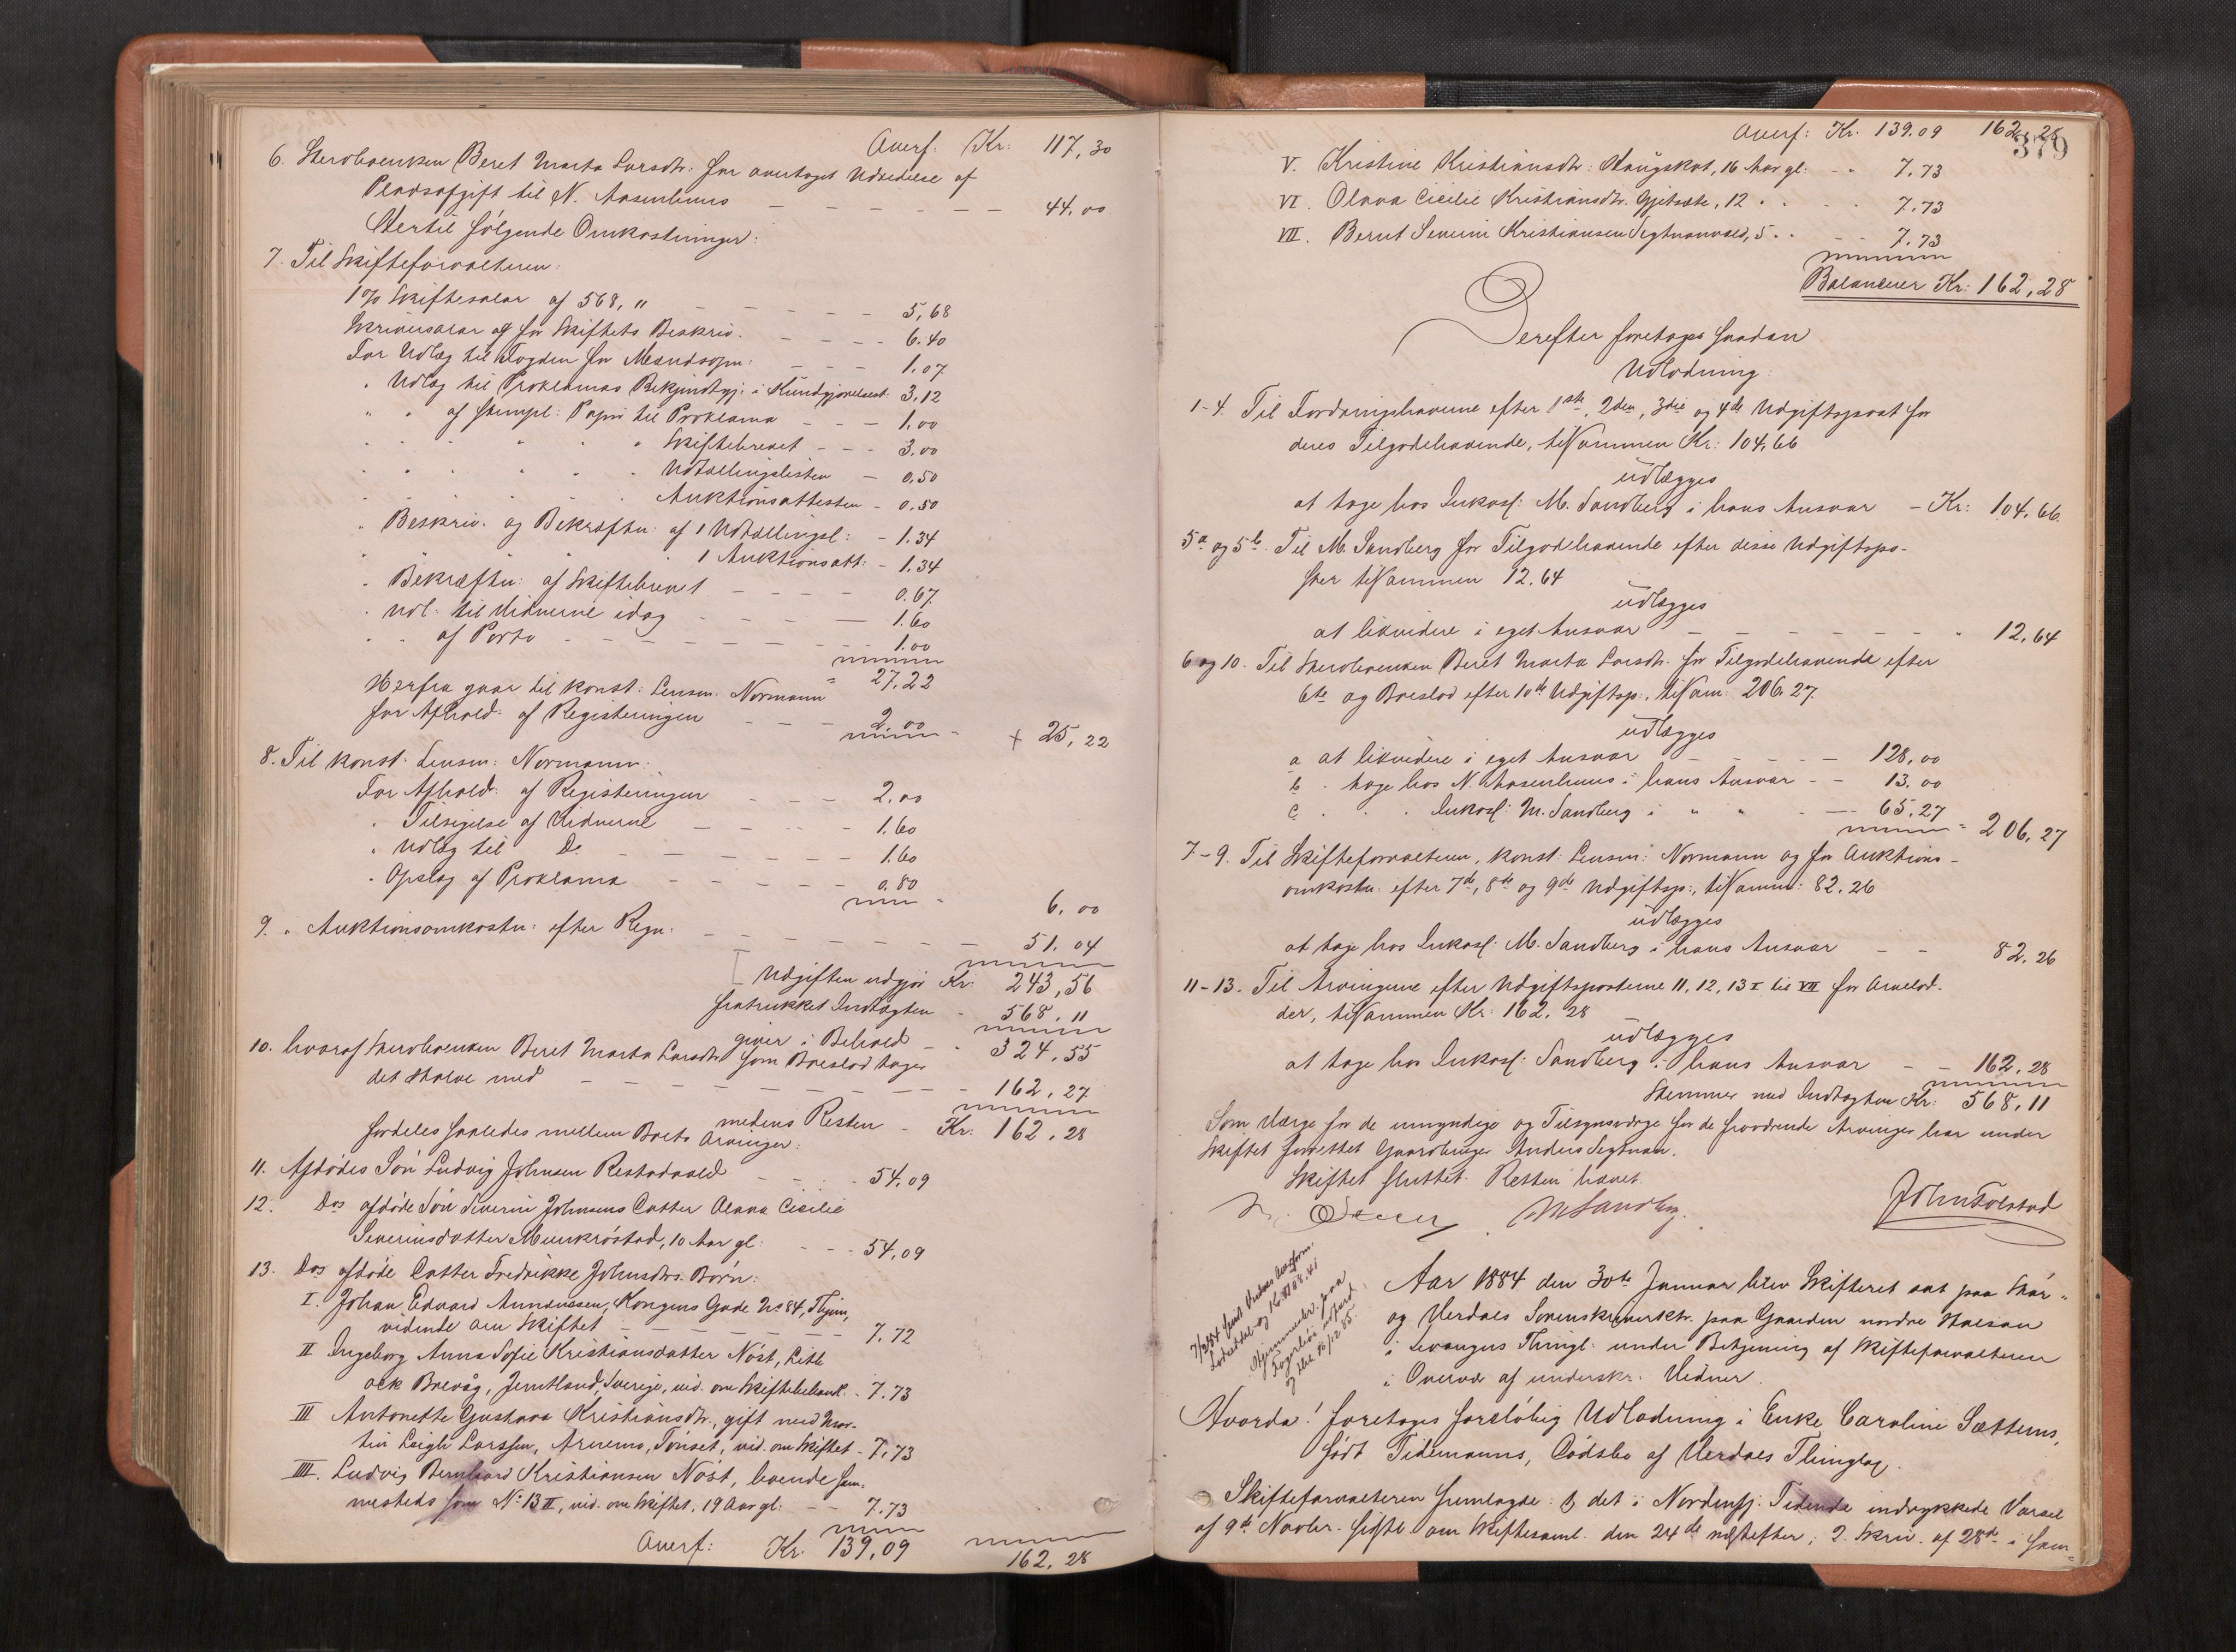 Overf: Kr: 117,30
6. Sterboenken Beret Marta Larsdtr: for overtaget Udredelse af
Pladsafgift til N. Aasenhuus — — — — — — 44.00
Hertil følgende Omkostninger:
7. Til Skifteforvalteren:
1% Skiftesalær af 568, " — — — — 5,68
Skriversalær og for Skiftets Beskriv. — — — — 6.40
For Udlæg til Fogden for Mandsopn: — — — 1.07
" Udlæg til Proklamas Bekjendtgj. i Kundgjørelsest. 3,12
" " af stempl: Papir til Proklama — — — 1.00
" " " " " Skiftebrevet — — — 3.00
" " " " " Udtællingslisten — 0.50
" " " " " Auktionsattesten — 0.50
" Beskriv. og Bekræftn: af 1 Udtællingsl: — 1.34
" " " " 1 Auktionsatt: — 1.34
" Bekræftn: af Skiftebrevet — — — — 0.67
" Udl. til Vidnerne idag — — — — 1.60
" " af Porto — — — — — 1.00
27.22
Herfra gaar til konst: Lensm. Normann
for Afhold: af Registeringen — — — 2.00
+ 25,22
8. Til konst: Lensm: Normann:
For Afhold: af Registeringen — — — 2.00
" Tilsigelse af Vidnerne — — — — 1.60
" Udlæg til Do — — — — — 1.60
" Opslag af Proklama — — — — — 0.80
6.00
9. " Auktionsomkostn: efter Regn: — — — — — — — 51.04
Udgiften udgjør Kr: 243,56
fratrukket Indtægten - 568.11
giver i Behold - 324.55
10. hvoraf Sterboenken Beret Marta Larsdtr som Boeslod tager
det Halve med — — — — — — — — — 162.27
medens Resten - Kr: 162.28
fordeles saaledes mellem Boets Arvinger:
11. Afdødes Søn Ludvig Johnsen Restadvald — — — 54.09
12. Dos afdøde Søn Severin Johnsens Datter Olava Cicilie
Severinsdatter Munkrøstad, 10 Aar gl: — — — 54,09
13. Dos afdøde Datter Fredrikke Johnsdtrs. Børn:
I. Johan Eduard Amundssen, Kongens Gade No 84, Thjem,
vidende om Skiftet — — — — — — 7.72
II Ingeborg Anna Sofie Kristiansdatter Nøst,
Brevåg, Jemtland, Sverige, vid. om Skiftebehandl. - 7.73
III Antonette Gustava Kristiansdtr., gift med Mar-
tin Larssen, Tønset, vid. om Skiftet - 7,73
IIII. Ludvig Bernhard Kristiansen Nøst, boende sam-
mesteds som No 13 II, vid. om Skiftet, 19 Aar gl: — — 7.73
Overf: Kr. 139,09 162.28
379
Overf: Kr. 139.09 162,28
V. Kristine Kristiansdtr: Haugskot, 16 Aar gl: - - 7.73
VI. Olava Cicilie Kristiansdtr. Gjetsæte, 12 " " - - 7.73
VII. Bernt Severin Kristiansen Segtnanvald, 5 " " - - 7.73
Balancerer Kr: 162,28
Derefter foretoges saadan
Udlodning:
1-4. Til Fordringshaverne efter 1ste, 2den, 3die og 4de Udgiftspost for
deres Tilgodehavende, tilsammen Kr: 104,66
udlægges
at tage hos Inkass: M. Sandberg i hans Ansvar - Kr: 104.66
5a og 5b. Til M. Sandberg for Tilgodehavende efter disse Udgiftspo-
ster tilsammen 12.64
udlægges
at likvidere i eget Ansvar — — — — — — " 12.64
6 og 10. Til Sterboenken Beret Marta Larsdtr. for Tilgodehavende efter
6te og Boeslod efter 10de Udgiftsp:, tilsam: 206.27.
udlægges
a at likvidere i eget Ansvar — — — — 128,00
b " tage hos N. Aasenhuus i hans Ansvar - - 13.00
c " " " Inkass: M. Sandberg i " " - — 65.27
206,27
7-9. Til Skifteforvalteren, konst: Lensm: Normann og for Auktions-
omkostn: efter 7de, 8de og 9de Udgiftsp:, tilsamm: 82.26
udlægges
at tage hos Inkass: M. Sandberg i hans Ansvar — — 82.26
11-13. Til Arvingerne efter Udgiftsposterne 11, 12, 13 I til VII for Arvelod-
der, tilsammen Kr: 162.28
udlægges
at tage hos Inkass: Sandberg i hans Ansvar — — 162.28
Stemmer med Indtægten Kr: 568,11
Som Værge for de umyndige og Tilsynsværge for de fraværende Arvinger har under
Skiftet fungeret Gaardbruger Anders Segtnan.
Skiftet sluttet. Retten hævet.
M Sandberg.
John Tolstad
Aar 1884 den 30te Januar blev Skifteret sat paa Stør-
og Værdals Sorenskriverkt. paa Gaarden nordre Halsan
i Levangers Thingl. under Betjening af Skifteforvalteren
i Overvær af underskr. Vidner.
Hvorda! foretoges foreløbig Udlodning i Enke Caroline Sættems,
født Tidemanns, Dødsbo af Værdals Thinglag.
Skifteforvalteren fremlagde: 1, det i Nordenfj. Tidende indrykkede Varsel
af 9de Novbr. sidstl. om Skiftesaml. den 24de næstefter; 2. Skriv. af 28de i sam-